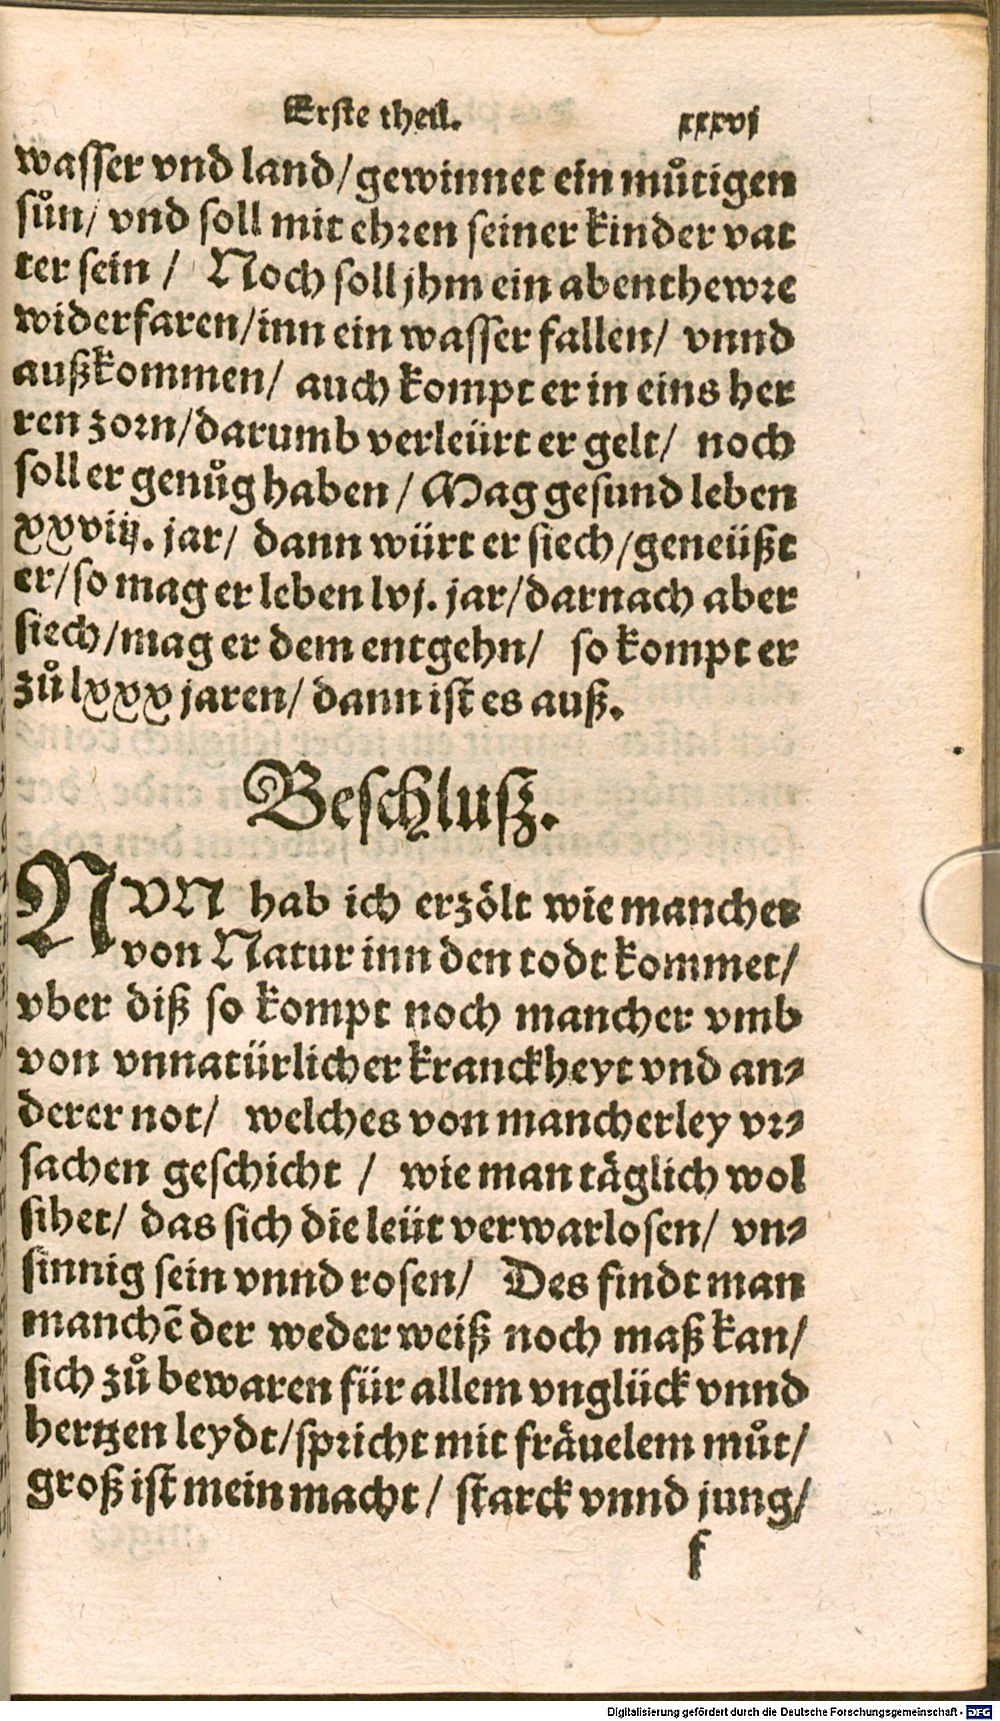 Erste theil. xxxvj
wasser vnd land/gewinnet ein muͦtigen
suͦn/ vnd soll mit ehren seiner kinder vat
ter sein / Noch soll jhm ein abenthewre
widerfaren/inn ein wasser fallen/ vnnd
außkommen/ auch kompt er in eins her
ren zorn/darumb verleürt er gelt/ noch
soll er genuͦg haben / Mag gesund leben
xxviij. jar/ dann würt er siech/geneüßt
er/so mag er leben lvj. jar/darnach aber
siech/mag er dem entgehn/ so kompt er
zuͦ lxxx jaren/ dann ist es auß.
Beschlusz.
NVN hab ich erzölt wie mancher
von Natur inn den todt kommet/
vber diß so kompt noch mancher vmb
von vnnatürlicher kranckheyt vnd an⸗
derer not/ welches von mancherley vr⸗
sachen geschicht / wie man täglich wol
sihet/ das sich die leüt verwarlosen/ vn⸗
sinnig sein vnnd rosen/ Des findt man
manchē der weder weiß noch maß kan/
sich zuͦ bewaren für allem vnglück vnnd
hertzen leydt/spricht mit fräuelem muͦt/
groß ist mein macht/ starck vnnd jung/
f
Digitalisierung gefördert durch die Deutsche Forschungsgemeinschaft - DFG